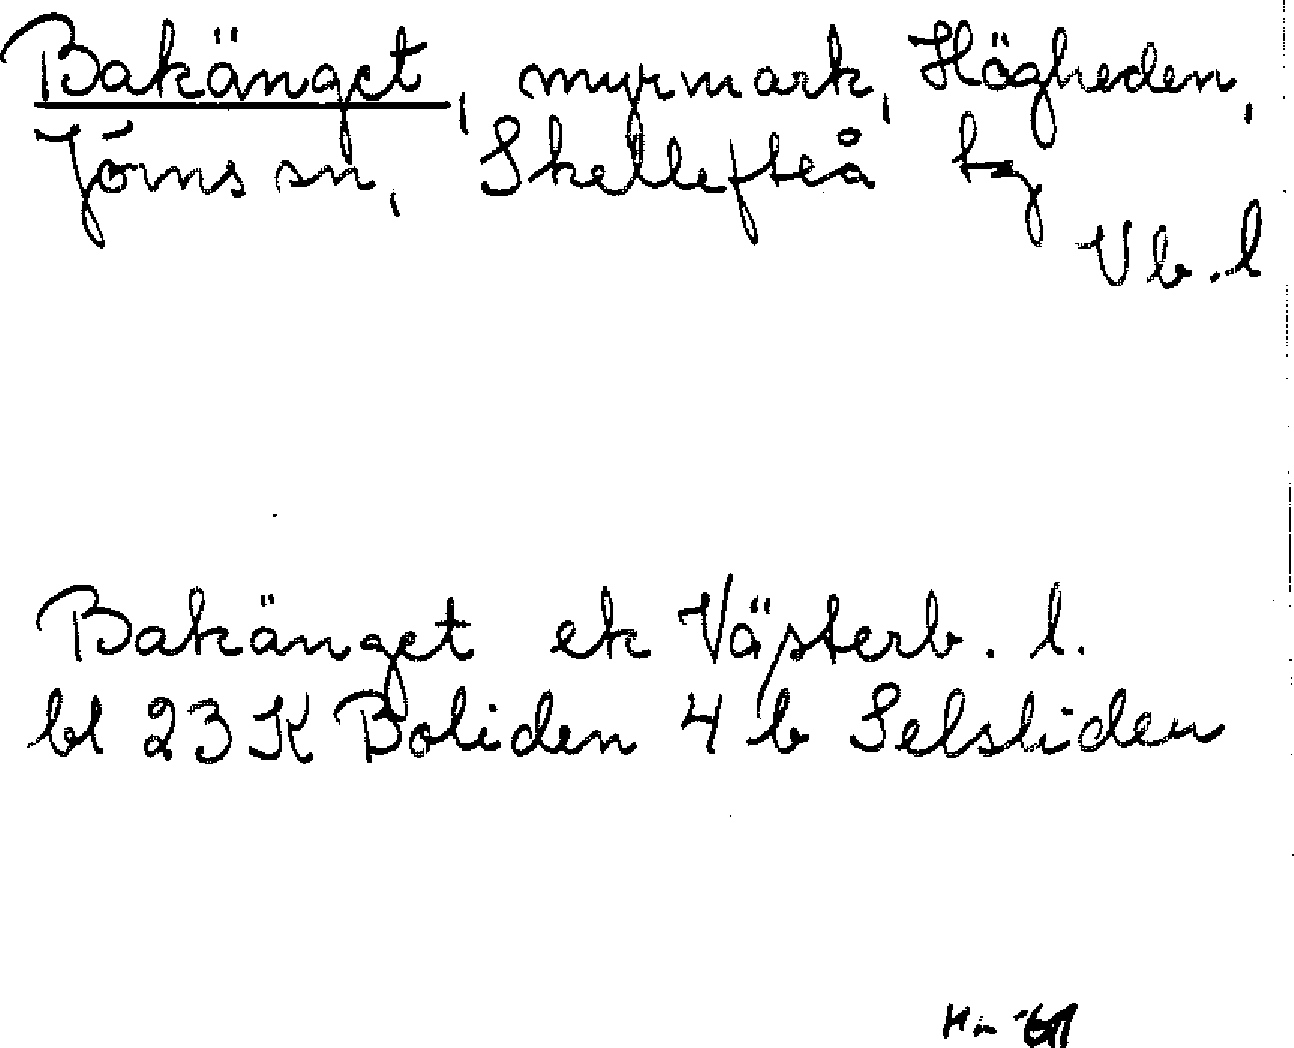 Bakänget, myrmark, Högheden,
Jörns sn, Skellefteå tg
Vb.l
Bakänget ek Västerb. l.
bl 23K Boliden 4 b Selsliden